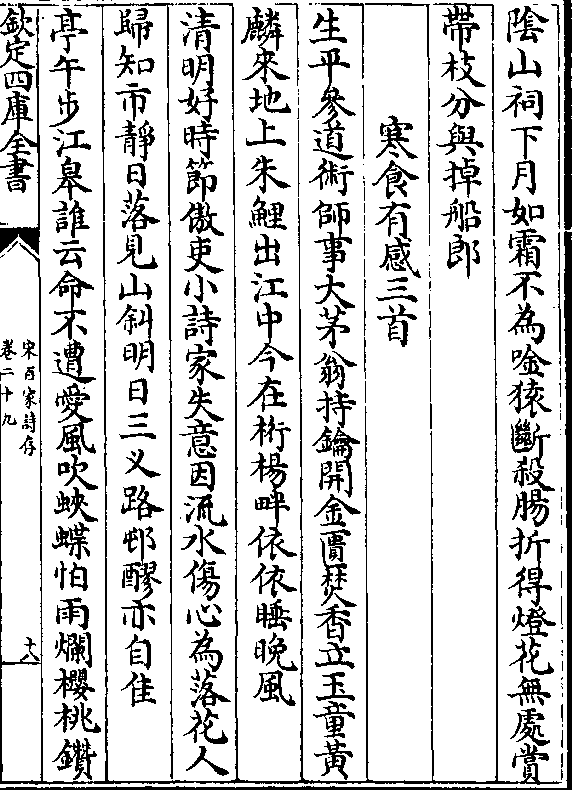 陰山祠下月如霜不為唫猿斷殺腸折得燈花無處賞
帶枝分與掉船郎
寒食有感三首
生平參道術師事大茅翁持鑰開金匱焚香立玉童黃
麟來地上朱鯉出江中今在桁楊畔依依睡晚風
清明好時節傲吏小詩家失意因流水傷心為落花人
歸知市靜日落見山斜明日三义路邨醪亦自佳
亭午步江皋誰云命不遭愛風吹蛺蝶怕雨爛櫻桃鑽
欽定四庫全書
宋百家詩存
卷二十九
十八